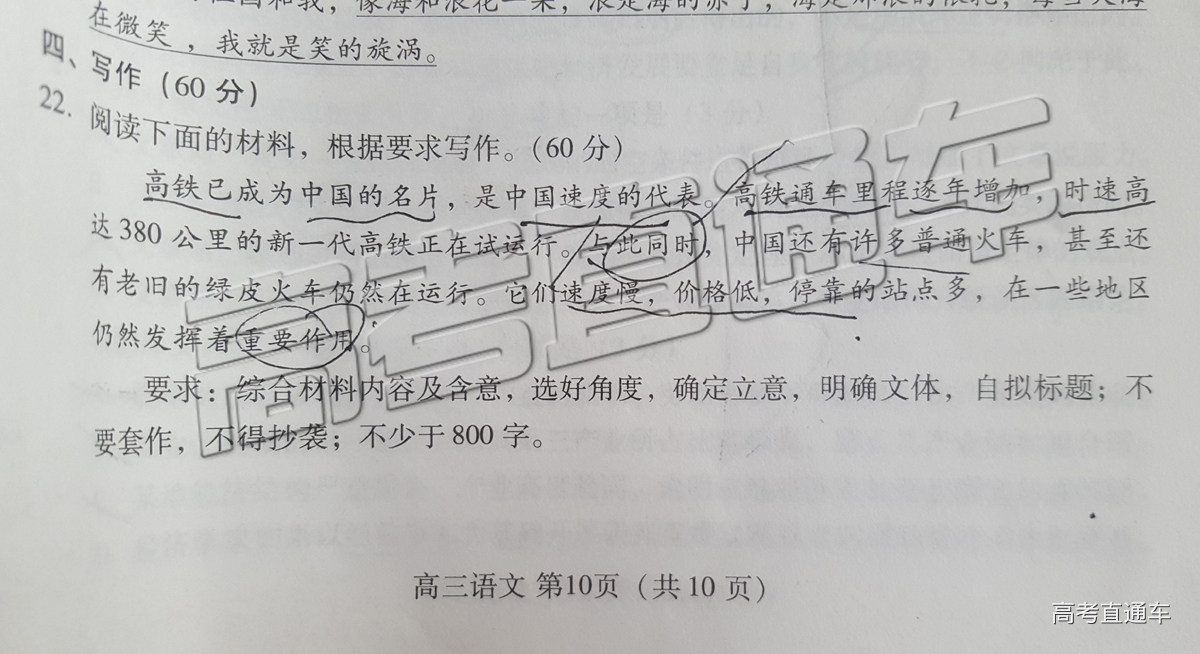 在微笑，我就是笑的旋涡。
四、写作（60分）
22. 阅读下面的材料，根据要求写作。（60分）
高铁已成为中国的名片，是中国速度的代表。高铁通车里程逐年增加，时速高
达380公里的新一代高铁正在试运行。与此同时，中国还有许多普通火车，甚至还
有老旧的绿皮火车仍然在运行。它们速度慢，价格低，停靠的站点多，在一些地区
仍然发挥着重要作用。
要求：综合材料内容及含意，选好角度，确定立意，明确文体，自拟标题；不
要套作，不得抄袭；不少于800字。
高三语文 第10页（共10页）
高考直通车
高考直通车